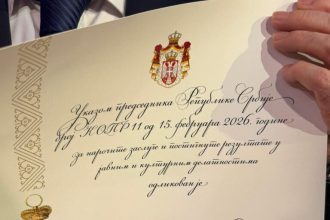 Указом председника Републике Србије
број КОПР 11 од 15. фебруара 2026. године
за нарочите заслуге и постигнуте резултате у
јавним и културним делатностима
одликован је